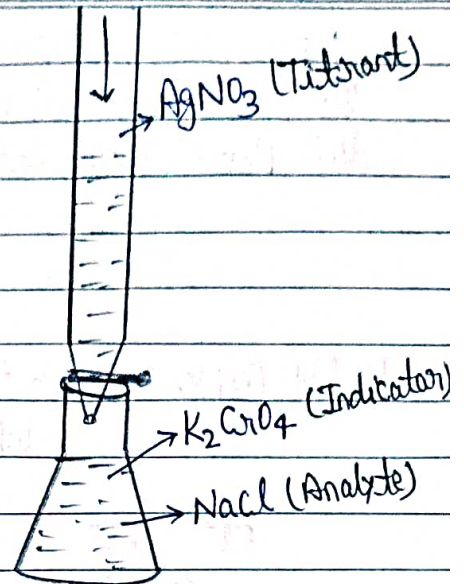 AgNO₃ (Titrant)
K₂CrO₄ (Indicator)
NaCl (Analyte)